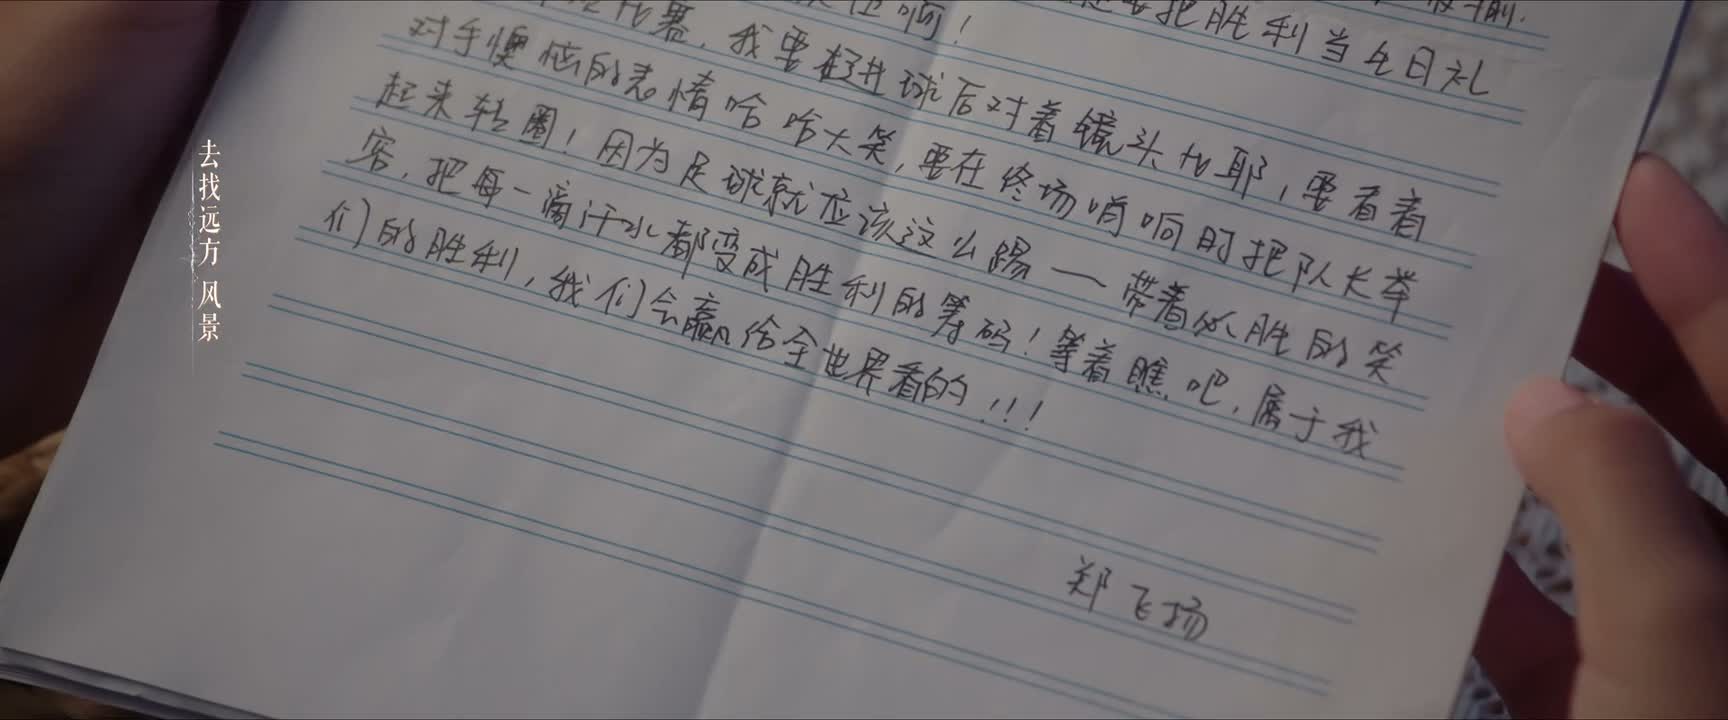 要把胜利当生日礼
比赛，我要在进球后对着镜头比耶，要看着
对手懊恼的表情哈哈大笑，要在终场哨响时把队长举
起来转圈！因为足球就应该这么踢——带着必胜的笑
容，把每一滴汗水都变成胜利的筹码！等着瞧吧，属于我
们的胜利，我们会赢给全世界看的！！！
郑飞扬
去找远方风景